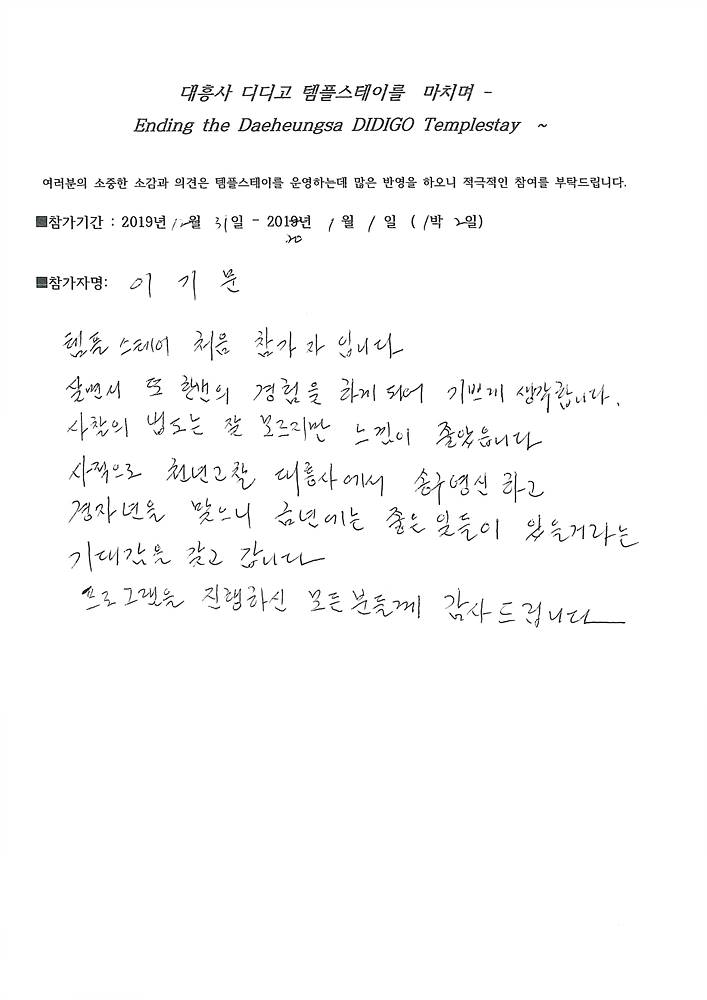 대흥사 디디고 템플스테이를 마치며 -
Ending the Daeheungsa DIDIGO Templestay ~
여러분의 소중한 소감과 의견은 템플스테이를 운영하는데 많은 반영을 하오니 적극적인 참여를 부탁드립니다.
■참가기간 : 2019년 12월 31일 - 2019년 1월 1일 ( 1박 2일)
20
■참가자명: 이기문
템플스테이 처음 참가자 입니다
살면서 또 한번의 경험을 하게 되어 기쁘게 생각합니다.
사찰의 법도는 잘 모르지만 느낌이 좋았읍니다
사적으로 천년고찰 대흥사에서 송구영신 하고
경자년을 맞으니 금년에는 좋은 일들이 있을거라는
기대감을 갖고 갑니다
프로그램을 진행하신 모든분들께 감사드립니다